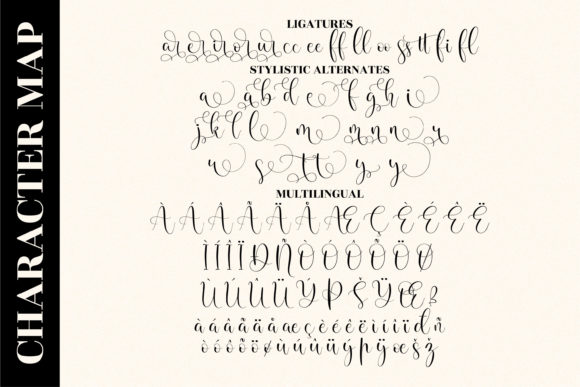 CHARACTER MAP
LIGATURES
ar er ir or ur cc ee ff ll oo ss tt fi fl
STYLISTIC ALTERNATES
a a b d e f g h i
j k l l m m n n r
w s t t y y
MULTILINGUAL
À Á Â Ã Ä Å Æ Ç È É Ê Ë
Ì Í Î Ï Ð Ñ Ò Ó Ô Õ Ö Ø
Ù Ú Û Ü Ý Þ Š Ÿ Œ ß
à á â ã ä å æ ç è é ê ë ì í î ï d ñ
ò ó ô õ ö ø ù ú û ü ý þ ÿ œ š ž